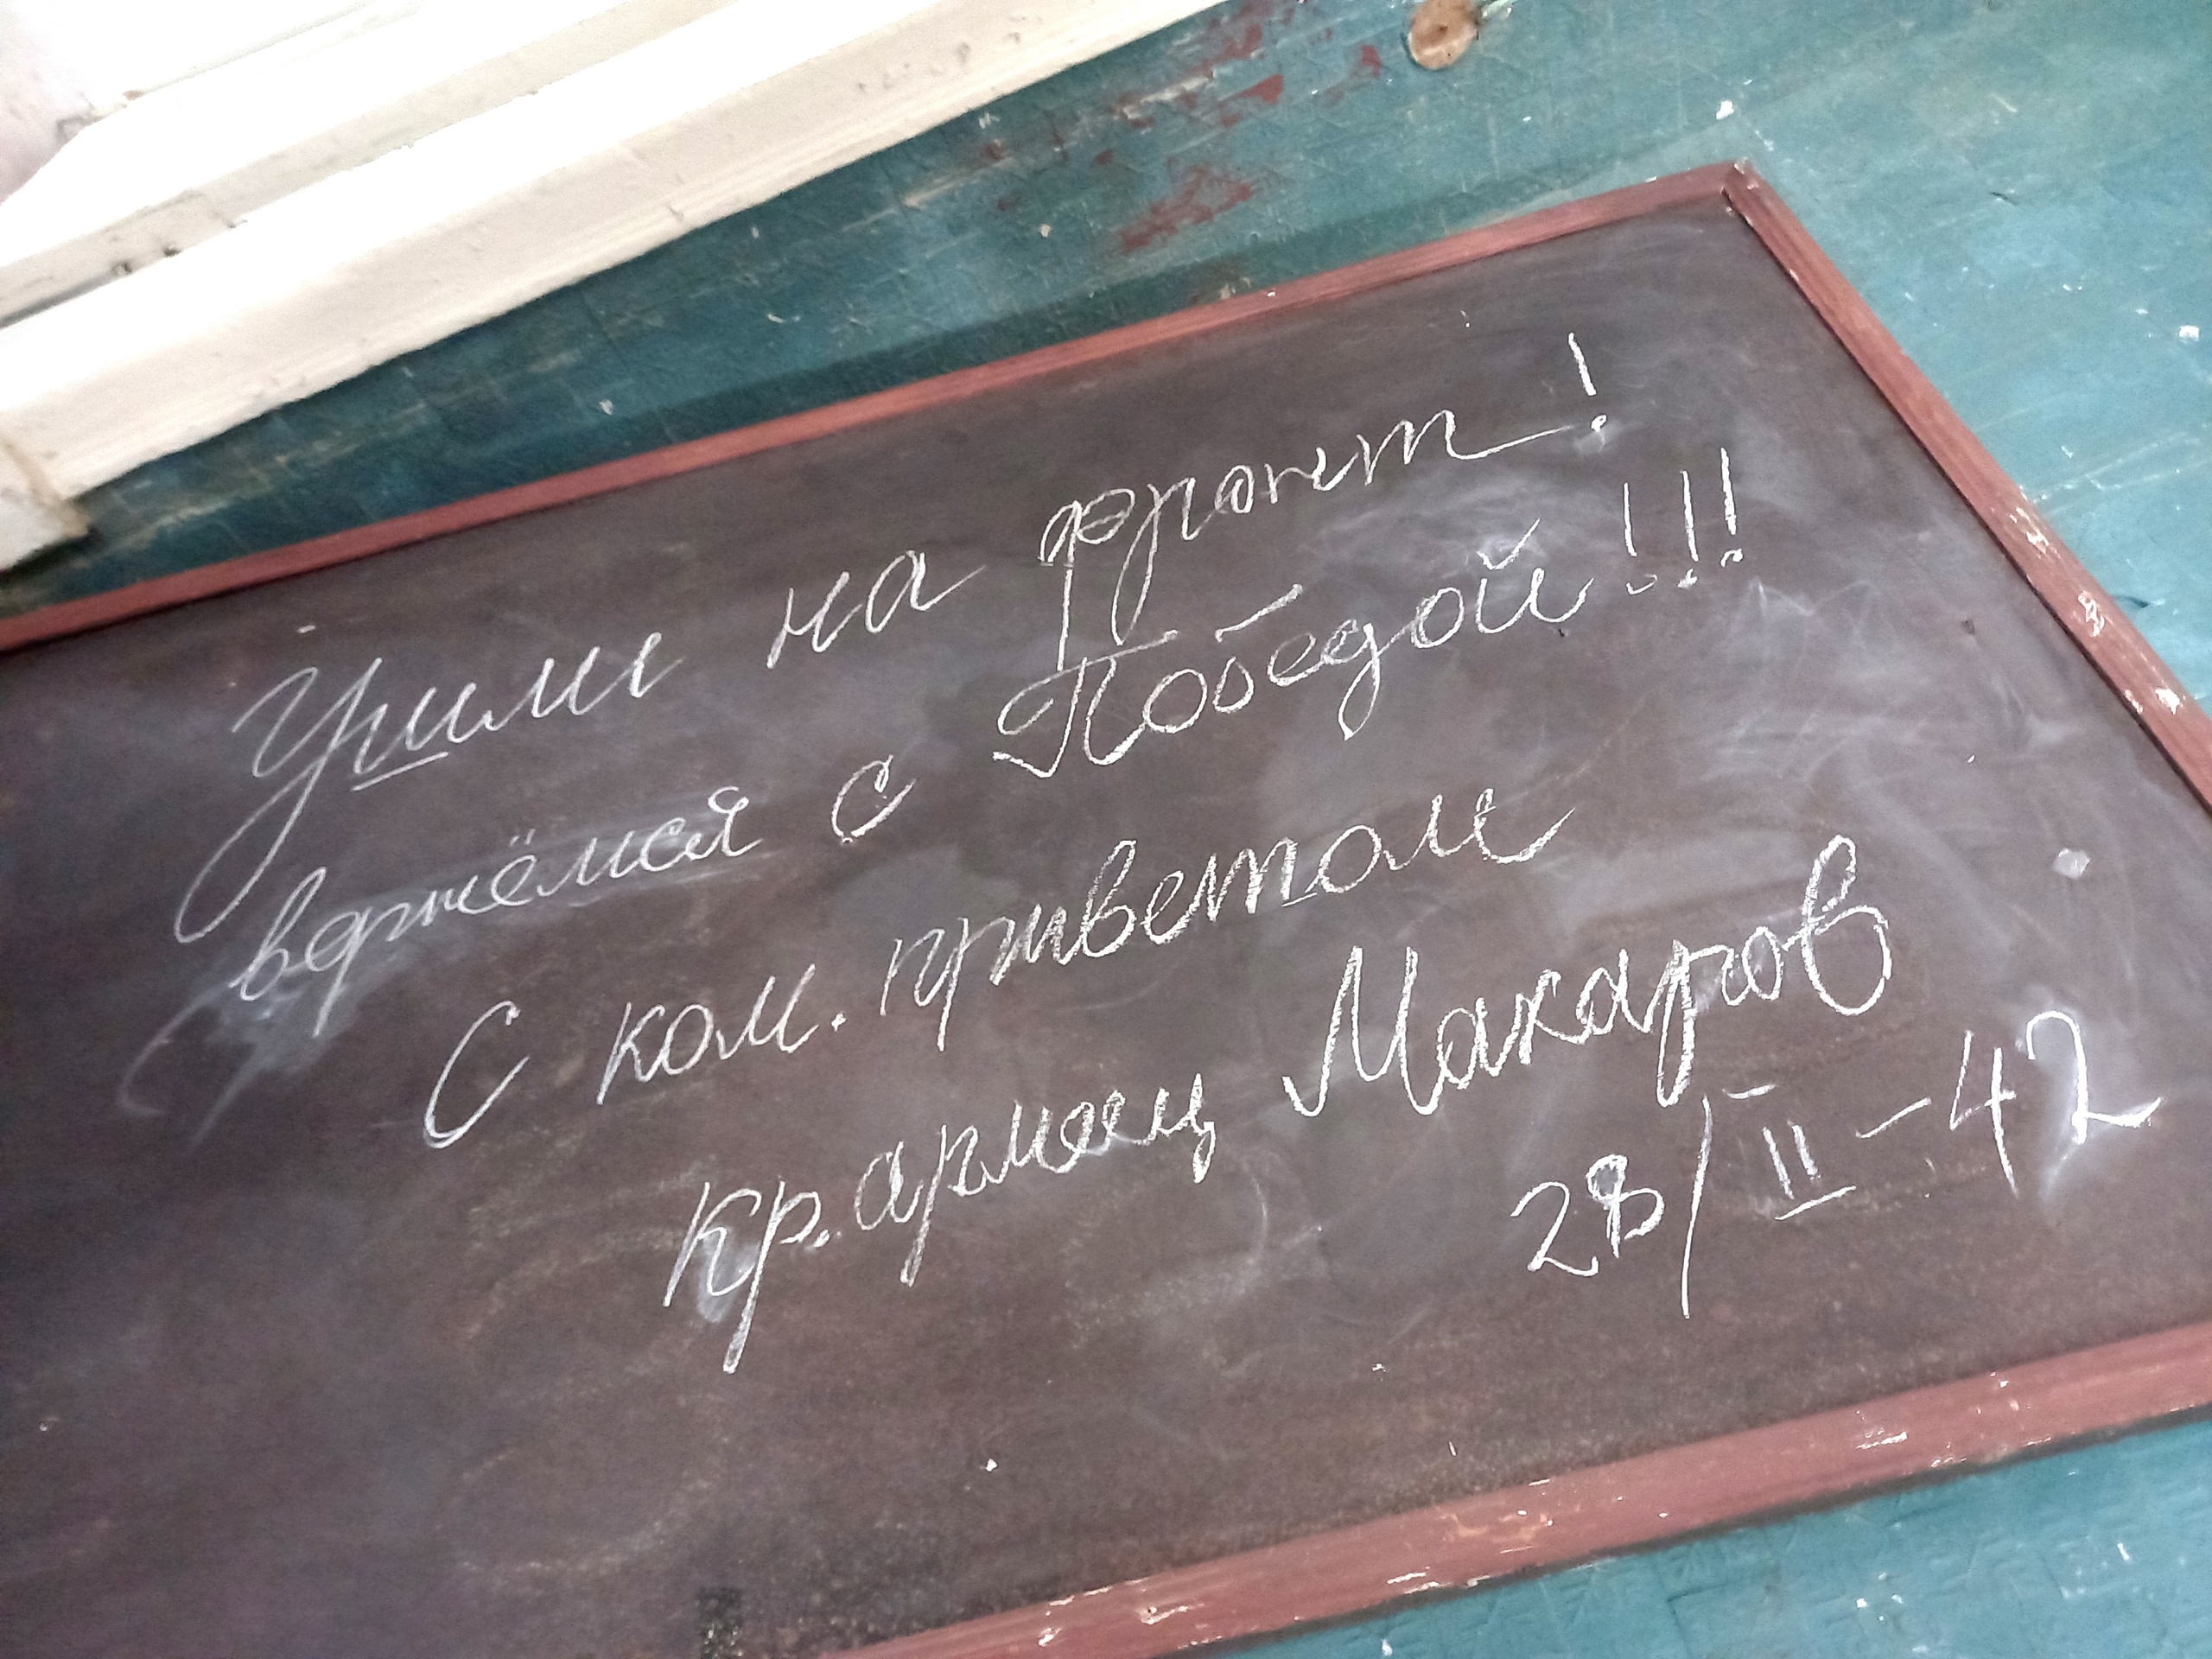 Ушли на фронт!
вернёмся с Победой!!!
С ком. приветом
кр. армеец Макаров
28/II-42